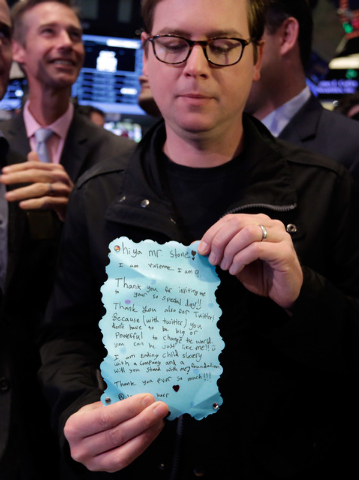 Hiya Mr Stone!
I am vivienne I am 9
Thank you for inviting me
to your so special day!!
Thank you also for Twitter
Because (with twitter) you
don't have to be big or
powerful to change the world
you can be just like me!!
I am ending child slavery
with a company and a
foundation
with you stand with me
Thank you ever so much!!!